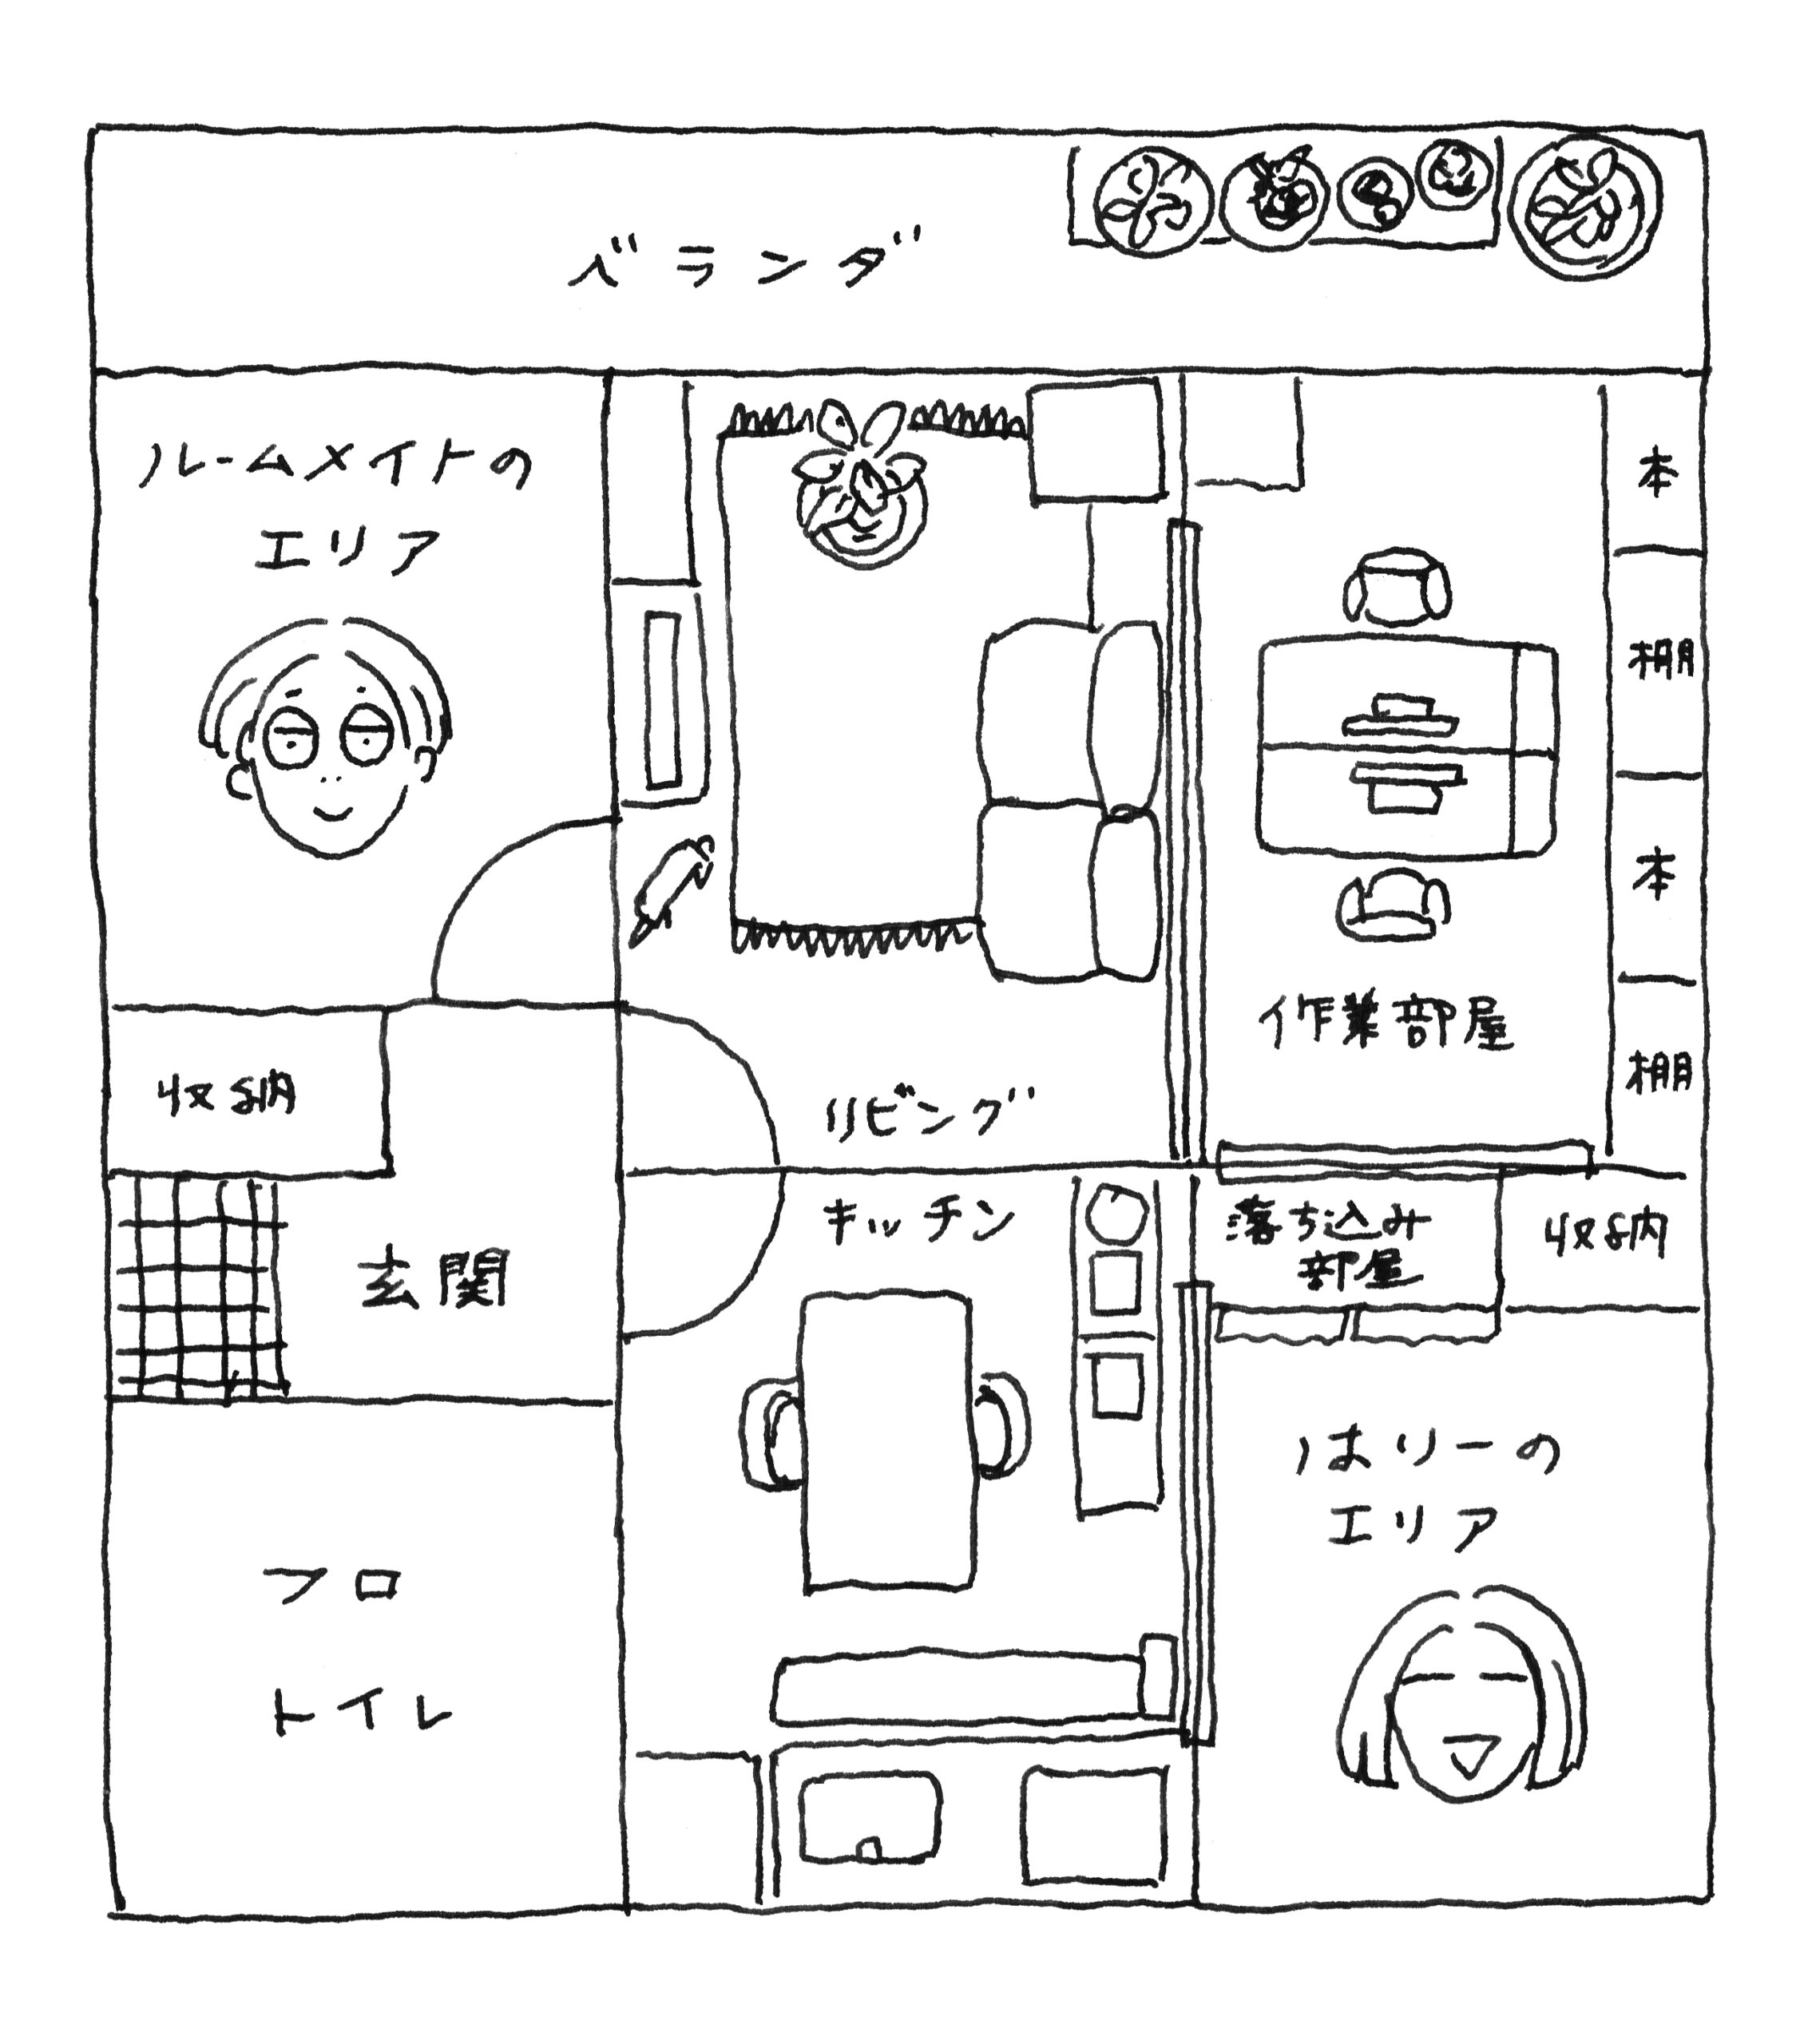 ベランダ
ルームメイトの
エリア
本
棚
本
棚
作業部屋
リビング
収納
玄関
キッチン
落ち込み
部屋
収納
はりーの
エリア
フロ
トイレ